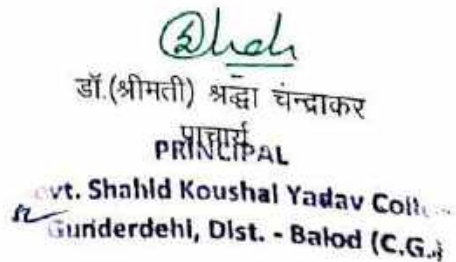 डॉ.(श्रीमती) श्रद्धा चंन्द्राकर
प्राचार्य
PRINCIPAL
vt. Shahid Koushal Yadav Coll
Gunderdehi, Dist. - Balod (C.G.)